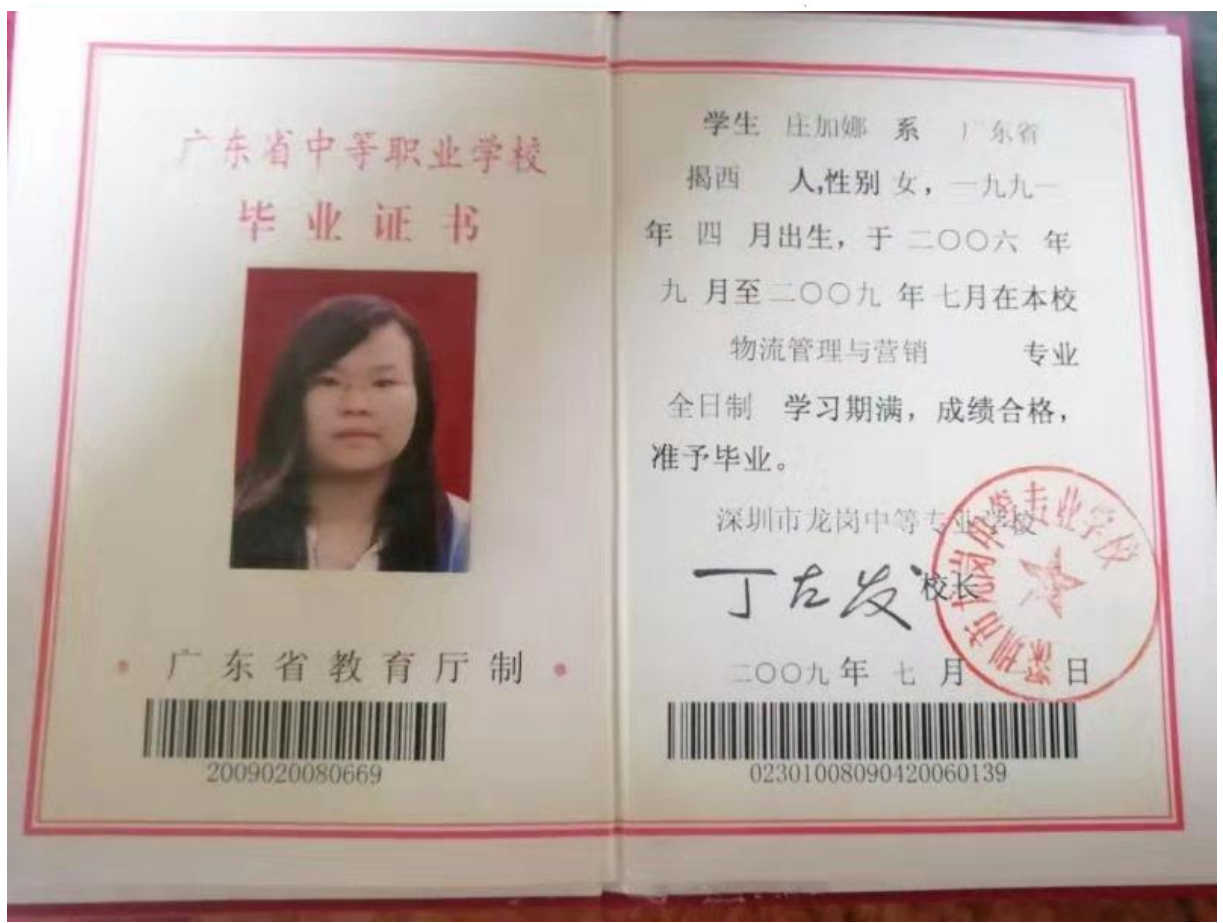 广东省中等职业学校
毕业证书
广东省教育厅制
2009020080669
学生 庄加娜 系 广东省
揭西 人,性别 女，一九九一
年 四 月出生，于 二〇〇六 年
九 月至 二〇〇九 年 七月在本校
物流管理与营销 专业
全日制 学习期满，成绩合格，
准予毕业。
深圳市龙岗中等专业学校
校长
二〇〇九 年 七 月 日
深圳市龙岗中等专业学校
02301008090420060139